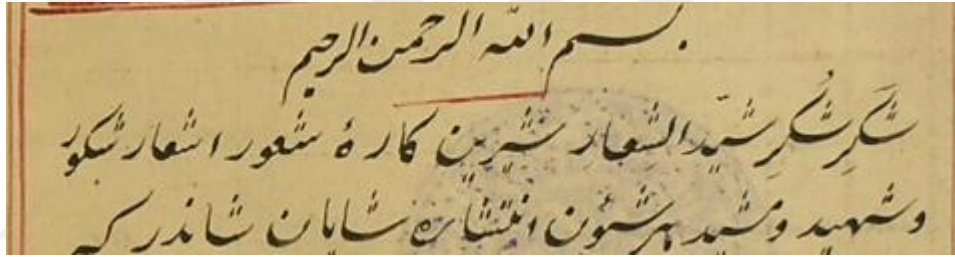 بسم الله الرحمن الرحيم
شَكَرِ شُكرِ شيّد الشِعارِ شيرين كارهٔ شعور اشعار شكور
وشهيد ومشيد بر شؤن انتشارهٔ شايان شاندر كه